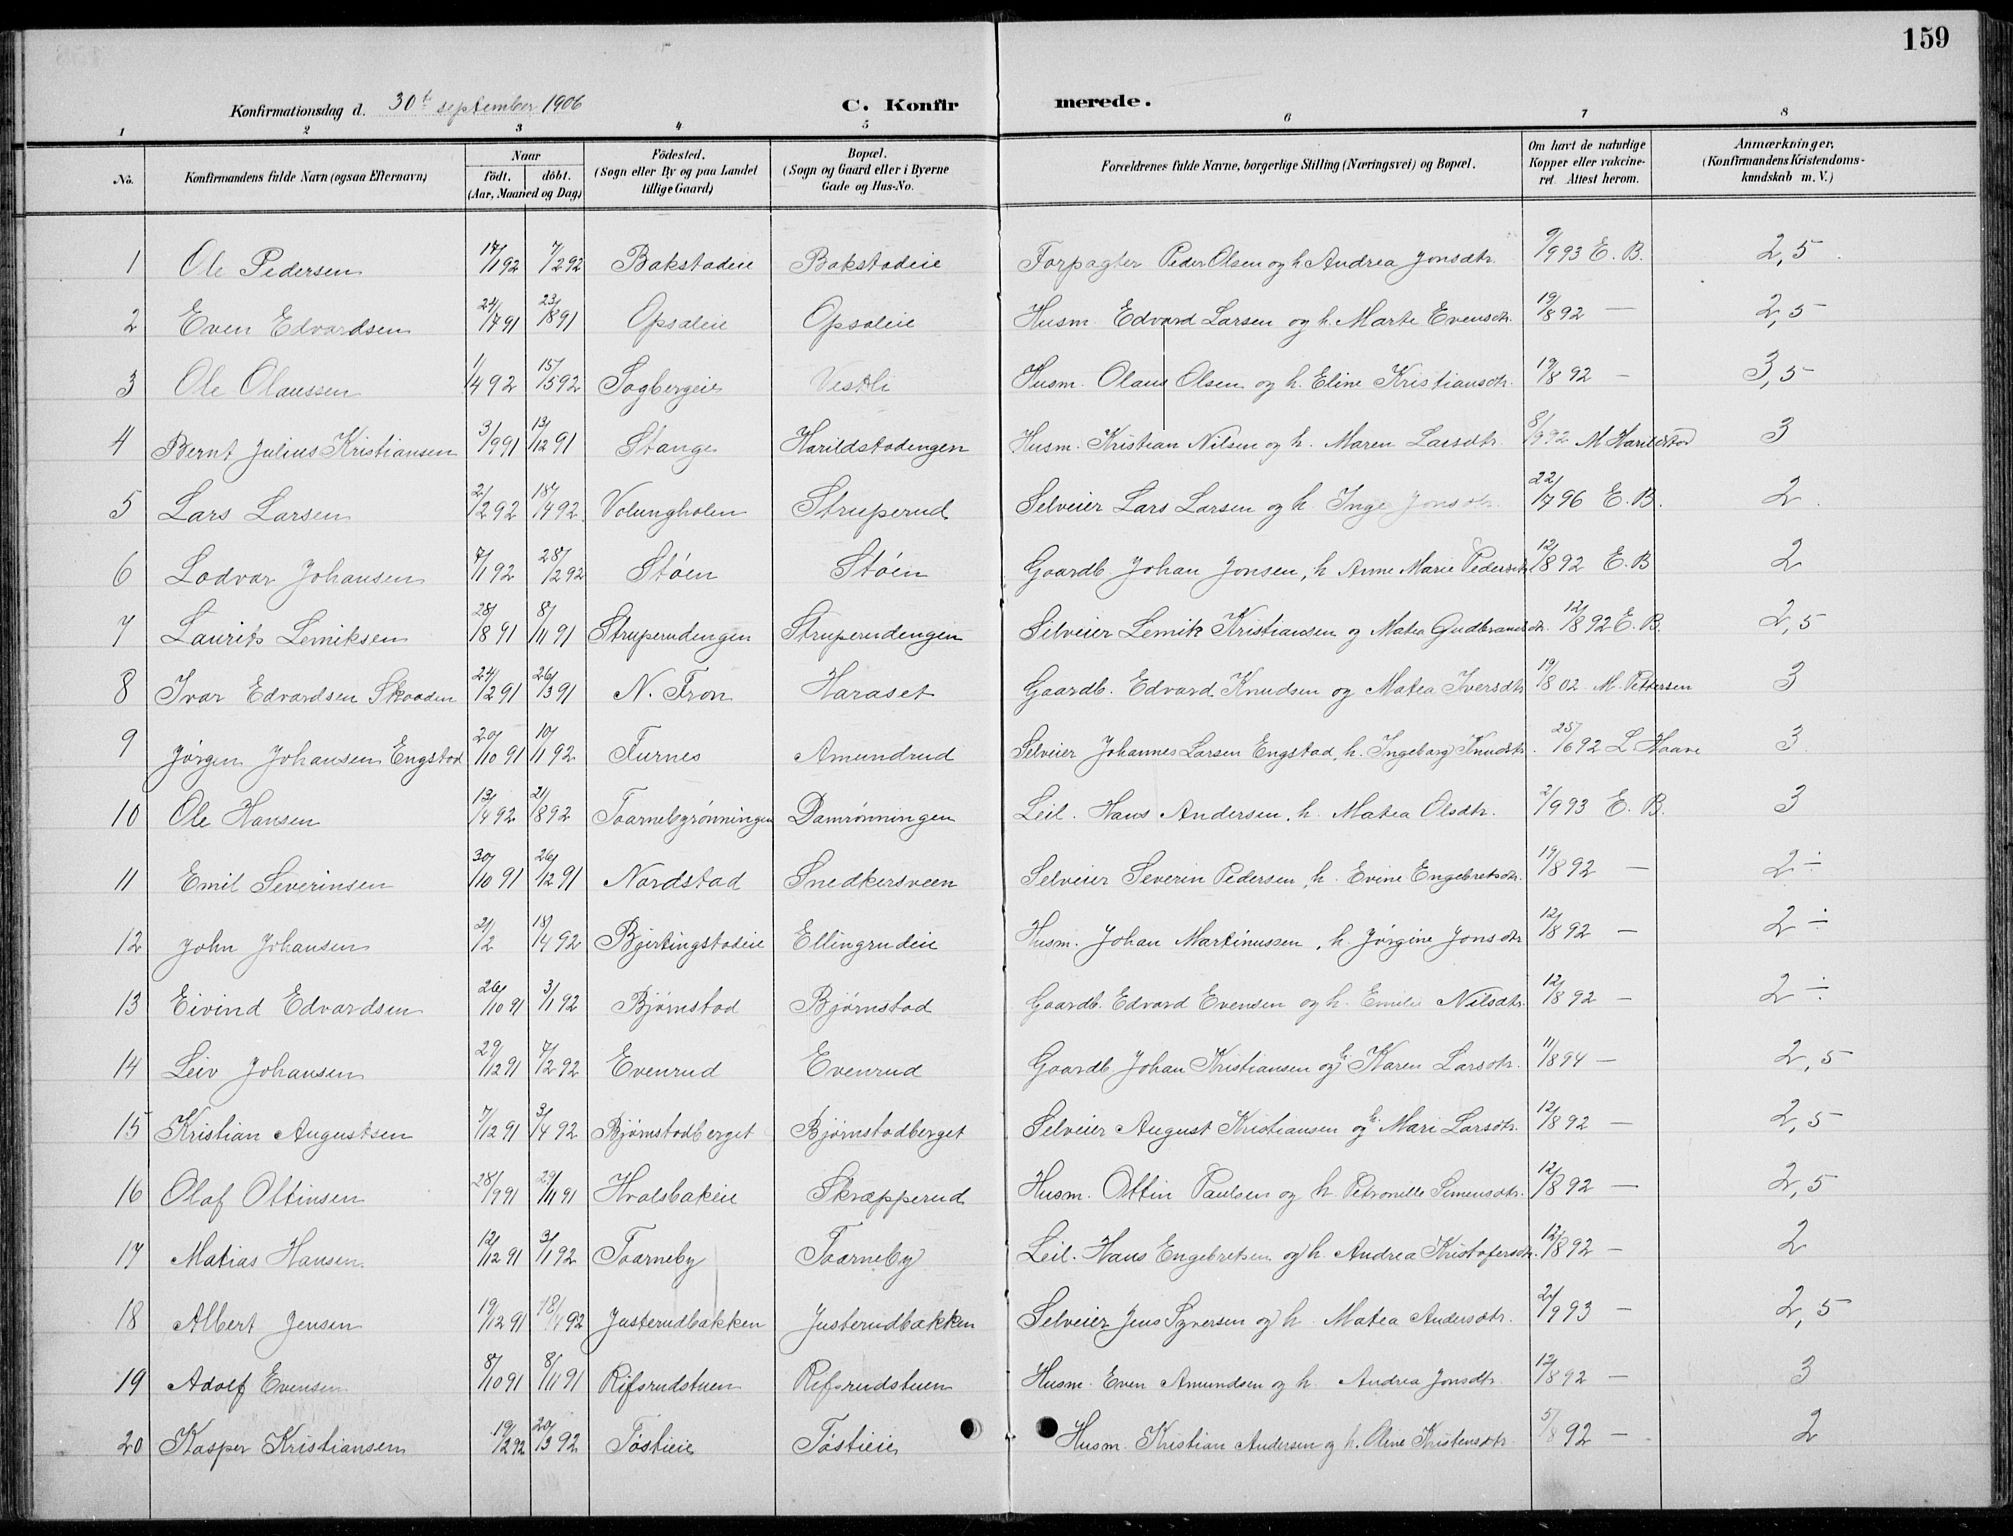 159
Konfirmationsdag d. 30te september 1906
C. Konfirmerede.
1 2 3 4 5 6 7 8
No.
Konfirmandens fulde Navn (ogsaa Efternavn)
Naar
födt. döbt.
(Aar, Maaned og Dag)
Födested.
(Sogn eller By og paa Landet
tillige Gaard)
Bopæl.
(Sogn og Gaard eller i Byerne
Gade og Hus-No.
Forældrenes fulde Navne, borgerlige Stilling (Næringsvei) og Bopæl.
Om havt de naturlige
Kopper eller vakcine-
ret. Attest herom.
Anmærkninger.
(Konfirmandens Kristendoms-
kundskab m. V.)
1 Ole Pedersen 17/1 92 7/2 92 Bakstadeie Bakstadeie Forpagter Peder Olsen og h. Andrea Jonsdtr. 9/9 93 E. B. 2,5
2 Even Edvardsen 24/7 91 23/8 91 Opsaleie Opsaleie Husm. Edvard Larsen og h. Marte Evensdtr. 19/8 92 — 2,5
3 Ole Olaussen 1/4 92 15/5 92 Sogbergeie Vestli Husm. Olaus Olsen og h. Eline Kristiansdtr. 19/8 92 — 3,5
4 Bernt Julius Kristiansen 3/9 91 13/12 91 Stange Harildstadengen Husm. Kristian Nilsen og h. Maren Larsdtr. 8/9 92 M. Harildstad 3
5 Lars Larsen 2/2 92 18/4 92 Volungholen Struperud Selveier Lars Larsen og h. Inge Jonsdtr. 22/7 96 E. B. 2
6 Lodvar Johansen 7/1 92 28/2 92 Stöen Stöen Gaardb. Johan Jonsen, h. Anne Marie Pedersdtr. 12/8 92 E. B 2
7 Laurits Lemiksen 28/8 91 8/11 91 Struperudengen Struperudengen Selveier Lemik Kristiansen og Matea Gudbrandsdtr. 12/8 92 E. B. 2,5
8 Ivar Edvardsen Skaaden 24/2 91 26/3 91 N. Fron Haraset Gaardb. Edvard Knudsen og Matea Iversdtr 19/8 02 M. Pettersen 3
9 Jørgen Johansen Engstad 20/10 91 10/1 92 Furnes Amundrud Selveier Johannes Larsen Engstad, h. Ingeborg Knudsdtr. 25/6 92 L. Haave 3
10 Ole Hansen 13/4 92 21/8 92 Taarnebyrönningen Damrönningen Leil. Hans Andersen, h. Matea Olsdtr. 2/9 93 E. B. 3
11 Emil Severinsen 30/10 91 26/12 91 Nordstad Snedkersveen Selveier Severin Pedersen, h. Evine Engebretsdtr. 19/8 92 — 2 ÷
12 John Johansen 21/2 18/4 92 Bjertingstadeie Ellingrudeie Husm. Johan Martinussen, h. Jørgine Jonsdtr 12/8 92 — 2 ÷
13 Eivind Edvardsen 26/10 91 3/1 92 Bjørnstad Bjørnstad Gaardb. Edvard Evensen og h. Emilie Nilsdtr. 12/8 92 — 2 ÷
14 Leiv Johansen 29/12 91 7/2 92 Evenrud Evenrud Gaardb. Johan Kristiansen og h. Karen Larsdtr. 11/8 94 — 2,5
15 Kristian Augustsen 7/12 91 3/4 92 Bjørnstadberget Bjørnstadberget Selveier August Kristiansen og h. Mari Larsdtr. 12/8 92 — 2,5
16 Olaf Ottinsen 28/9 91 29/11 91 Hvalsbakeie Skræpperud Husm. Ottin Paulsen og h. Petronille Simensdtr. 12/8 92 — 2,5
17 Matias Hansen 12/12 91 3/1 92 Taarneby Taarneby Leil. Hans Engebretsen og h. Andrea Kristofersdtr. 12/8 92 — 2
18 Albert Jensen 19/12 91 18/4 92 Justerudbakken Justerudbakken Selveier Jens Syversen og h. Matea Andersdtr. 2/9 93 — 2,5
19 Adolf Evensen 8/10 91 8/11 91 Rifsrudstuen Rifsrudstuen Husm. Even Amundsen og h. Andrea Jonsdtr. 12/8 92 — 3
20 Kasper Kristiansen 19/2 92 20/3 92 Töstieie Töstieie Husm. Kristian Andersen og h. Oline Kristensdtr. 5/8 92 — 2